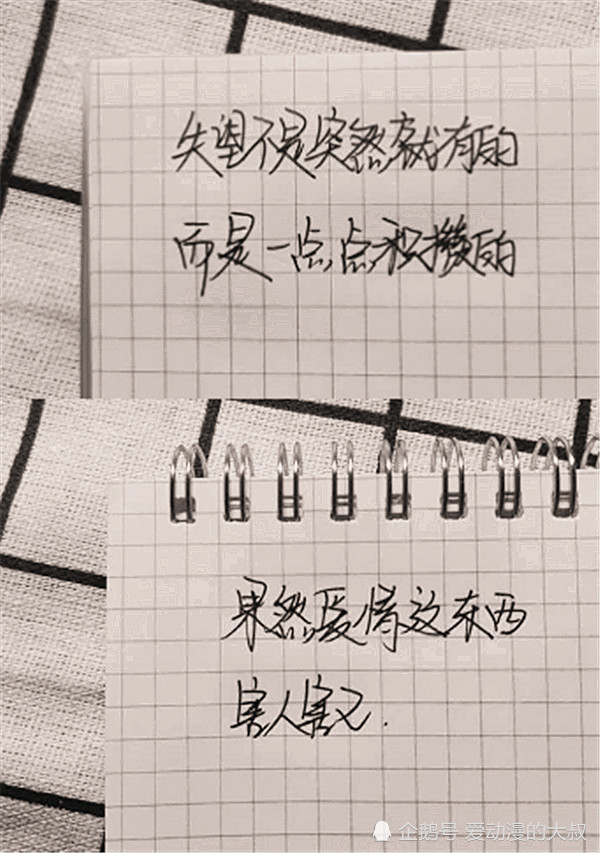 失望不是突然就有的
而是一点点积攒的
果然爱情这东西
害人害己.
企鹅号 爱动漫的大叔